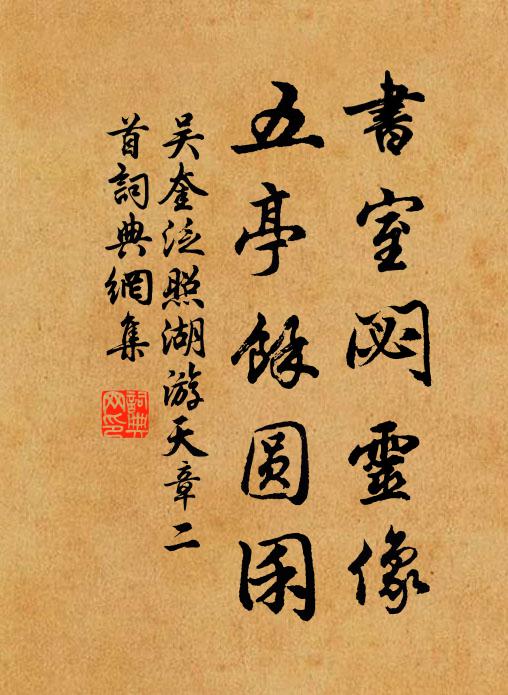 書室閟靈像
五亭餘圓囷
吴奎泛照湖游天章二
首詞典網集
詞典
网印